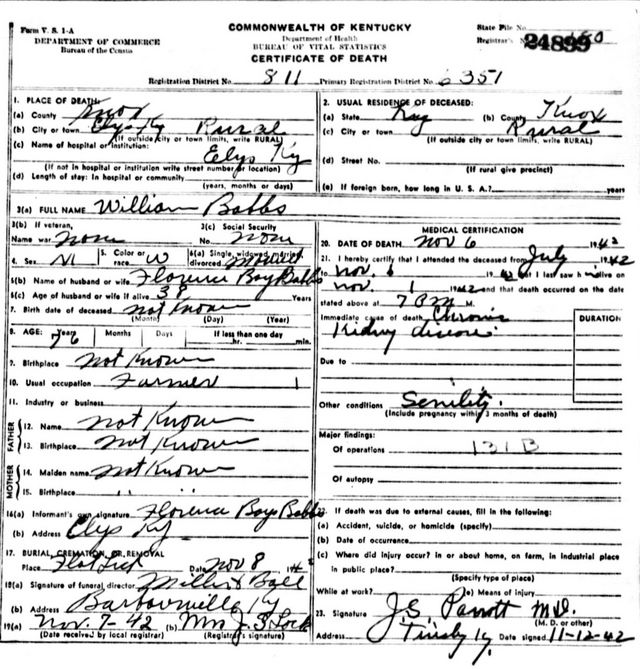 Form V. S. 1-A
DEPARTMENT OF COMMERCE
Bureau of the Census
COMMONWEALTH OF KENTUCKY
Department of Health
BUREAU OF VITAL STATISTICS
CERTIFICATE OF DEATH
State File No.
Registrar's No. 24899
Registration District No. 811 Primary Registration District No. 6351
1. PLACE OF DEATH:
(a) County Knox
(b) City or town Elys Ky Rural
(If outside city or town limits, write RURAL)
(c) Name of hospital or institution:
Elys Ky
(If not in hospital or institution write street number or location)
(d) Length of stay: In hospital or community
(years, months or days)
2. USUAL RESIDENCE OF DECEASED:
(a) State Ky (b) County Knox
(c) City or town Rural
(If outside city or town limits, write RURAL)
(d) Street No.
(If rural give precinct)
(e) If foreign born, how long in U. S. A.? years
3(a) FULL NAME William Bobbs
3(b) If veteran, Name war none
3(c) Social Security No. none
4. Sex M 5. Color or race W 6(a) Single, widowed, married, divorced Married
6(b) Name of husband or wife Florence Boy Bobbs
6(c) Age of husband or wife if alive 38 Years
7. Birth date of deceased not Known
(Month) (Day) (Year)
8. AGE: Years 76 Months Days If less than one day hr. min.
9. Birthplace not Known
10. Usual occupation Farmer 1
11. Industry or business
FATHER
12. Name not Known
13. Birthplace not Known
MOTHER
14. Maiden name not Known
15. Birthplace " "
16(a) Informant's own signature Florence Boy Bobbs
(b) Address Elys Ky
17. BURIAL, CREMATION, OR REMOVAL
Place Flat Lick Date Nov 8 194
18(a) Signature of funeral director Miller & Ball
(b) Address Barbourville Ky
19(a) Nov. 7-42 (b) Mrs J. S. Lock
(Date received by local registrar) (Registrar's signature)
MEDICAL CERTIFICATION
20. DATE OF DEATH Nov 6 1942
21. I hereby certify that I attended the deceased from July 1942
to Nov. 6 1942 that I last saw h alive on
Nov. 1 1942 and that death occurred on the date
stated above at 7 PM M.
Immediate cause of death Chronic
Kidney disease
DURATION
Due to
Other conditions Senility
(Include pregnancy within 3 months of death)
Major findings:
Of operations 131 B
Of autopsy
22. If death was due to external causes, fill in the following:
(a) Accident, suicide, or homicide (specify)
(b) Date of occurrence
(c) Where did injury occur? In or about home, on farm, in industrial place
in public place?
(Specify type of place)
While at work? (e) Means of injury
23. Signature J.S. Parrott M.D.
(M. D. or other)
Address Tinsley Ky. Date signed 11-12-42